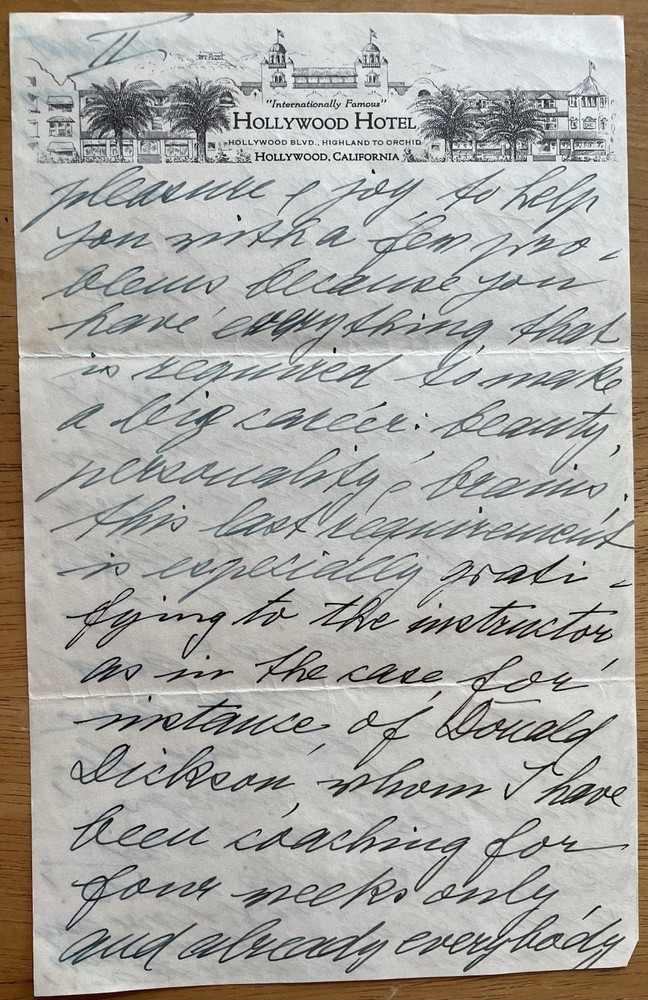 II
"Internationally Famous"
HOLLYWOOD HOTEL
HOLLYWOOD BLVD., HIGHLAND TO ORCHID
HOLLYWOOD, CALIFORNIA
pleasure & joy to help
you with a few pro-
blems because you
have everything that
is required to make
a big career: beauty,
personality & brains.
this last requirement
is especially grati-
fying to the instructor,
as in the case, for
instance, of Donald
Dickson, whom I have
been coaching for
four weeks only
and already everybody